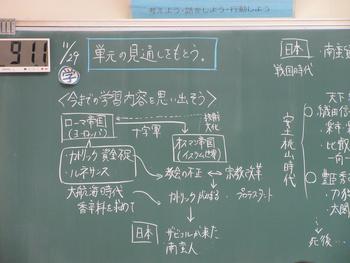 考えよう・話をしよう・行動しよう
911
11/29
学
単元の見通しをもとう。
<今までの学習内容を思い出そう>
ローマ帝国
(ヨーロッパ)
十字軍
オスマン帝国
(イスラム世界)
・カトリック
・ルネサンス
教会の不正 ↔ 宗教改革
大航海時代
香辛料を求めて
カトリック広がる
プロテスタント
日本
ザビエルが来た
南蛮人
日本
・南蛮
戦国時代
安土桃山時代
天下
織田信
豊臣秀
・刀狩
・太閤
死後…